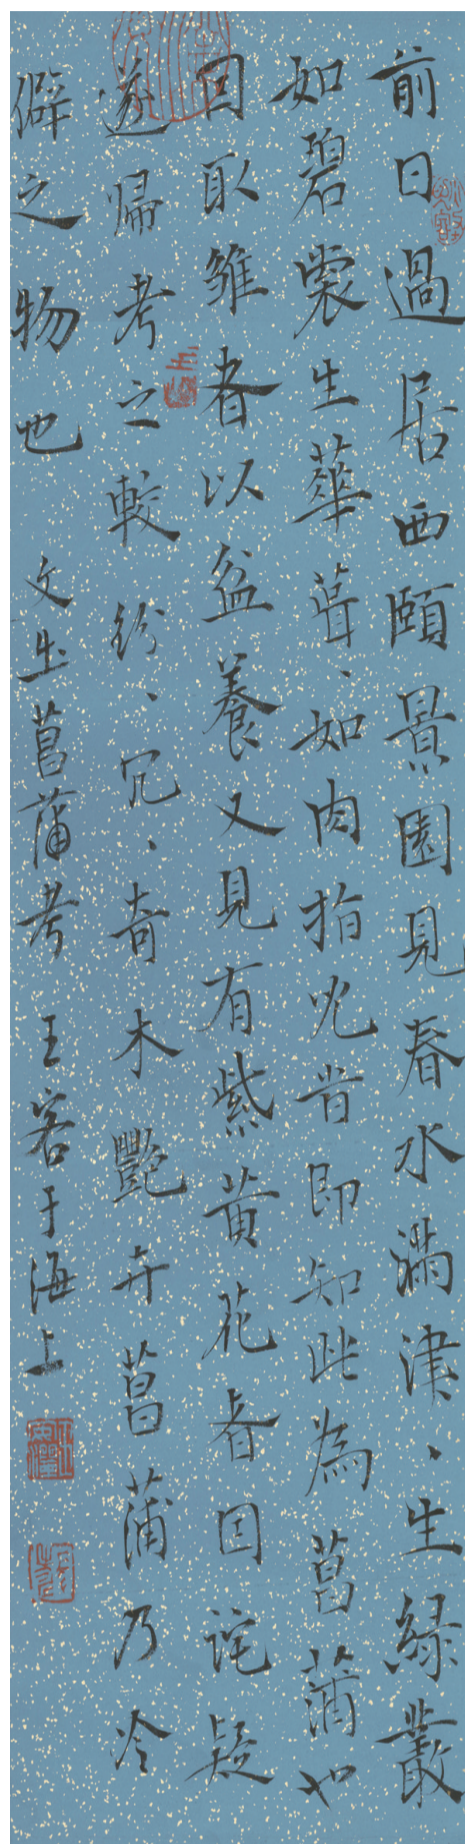 前日過居西頤景園見春水滿津、生綠叢
如碧裳生華葺、如肉指咒眥即知此為菖蒲也
因取雛者以盆養又見有紫黃花者因詫疑
遂歸考之較紛、冗、奇木艷卉菖蒲乃冷
僻之物也 文生菖蒲考 王客于海上